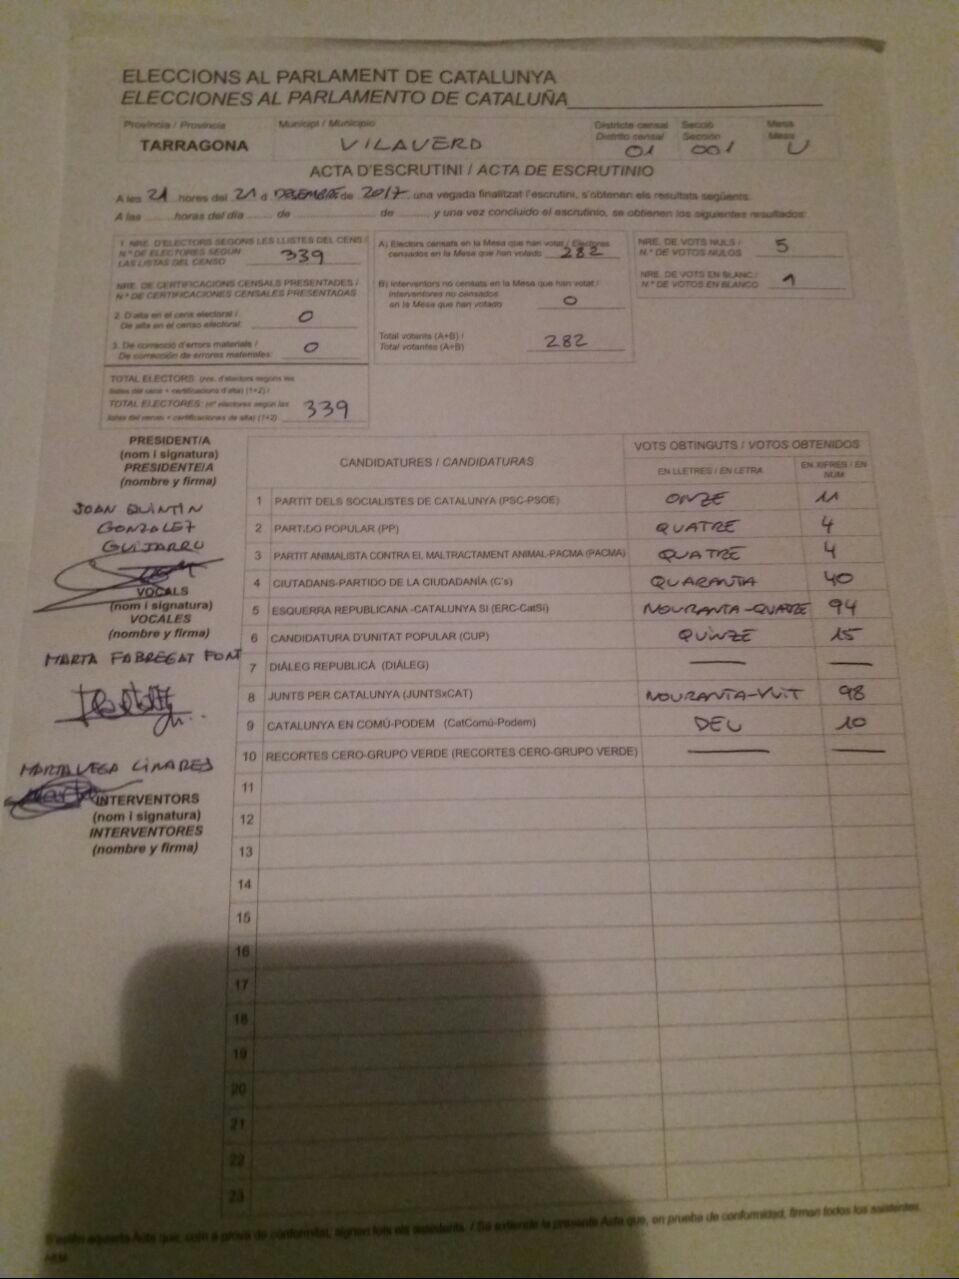 ELECCIONS AL PARLAMENT DE CATALUNYA
ELECCIONES AL PARLAMENTO DE CATALUÑA
Província / Provincia
TARRAGONA
Municipi / Municipio
VILAVERD
Districte censal
Distrito censal
01
Secció
Sección
001
Mesa
Mesa
U
ACTA D'ESCRUTINI / ACTA DE ESCRUTINIO
A les 21 hores del 21 d DESEMBRE de 2017, una vegada finalitzat l'escrutini, s'obtenen els resultats següents:
A las ........ horas del día ....... de .................. de .........., y una vez concluido el escrutinio, se obtienen los siguientes resultados:
1. NRE. D'ELECTORS SEGONS LES LLISTES DEL CENS /
N.º DE ELECTORES SEGÚN
LAS LISTAS DEL CENSO 339
NRE. DE CERTIFICACIONS CENSALS PRESENTADES /
N.º DE CERTIFICACIONES CENSALES PRESENTADAS
2. D'alta en el cens electoral /
De alta en el censo electoral: 0
3. De correcció d'errors materials /
De corrección de errores materiales: 0
TOTAL ELECTORS (nre. d'electors segons les
llistes del cens + certificacions d'alta) (1+2) /
TOTAL ELECTORES: (nº electores según las
listas del censo + certificaciones de alta) (1+2) 339
A) Electors censats en la Mesa que han votat / Electores
censados en la Mesa que han votado 282
B) Interventors no censats en la Mesa que han votat /
Interventores no censados
en la Mesa que han votado 0
Total votants (A+B) /
Total votantes (A+B) 282
NRE. DE VOTS NULS /
N.º DE VOTOS NULOS 5
NRE. DE VOTS EN BLANC /
N.º DE VOTOS EN BLANCO 1
PRESIDENT/A
(nom i signatura)
PRESIDENTE/A
(nombre y firma)
JOAN QUINTIN
GONZALEZ
GUIJARRO
VOCALS
(nom i signatura)
VOCALES
(nombre y firma)
MARTA FABREGAT FONT
MARTA VEGA LINARES
INTERVENTORS
(nom i signatura)
INTERVENTORES
(nombre y firma)
CANDIDATURES / CANDIDATURAS
VOTS OBTINGUTS / VOTOS OBTENIDOS
EN LLETRES / EN LETRA
EN XIFRES / EN
NÚM.
1 PARTIT DELS SOCIALISTES DE CATALUNYA (PSC-PSOE) ONZE 11
2 PARTIDO POPULAR (PP) QUATRE 4
3 PARTIT ANIMALISTA CONTRA EL MALTRACTAMENT ANIMAL-PACMA (PACMA) QUATRE 4
4 CIUTADANS-PARTIDO DE LA CIUDADANÍA (C's) QUARANTA 40
5 ESQUERRA REPUBLICANA -CATALUNYA SI (ERC-CatSi) NOURANTA-QUATRE 94
6 CANDIDATURA D'UNITAT POPULAR (CUP) QUINZE 15
7 DIÀLEG REPUBLICÀ (DIÀLEG) — —
8 JUNTS PER CATALUNYA (JUNTSxCAT) NOURANTA-VUIT 98
9 CATALUNYA EN COMÚ-PODEM (CatComú-Podem) DEU 10
10 RECORTES CERO-GRUPO VERDE (RECORTES CERO-GRUPO VERDE) — —
11
12
13
14
15
16
17
18
19
20
21
22
23
S'estén aquesta Acta que, com a prova de conformitat, signen tots els assistents. / Se extiende la presente Acta que, en prueba de conformidad, firman todos los asistentes.